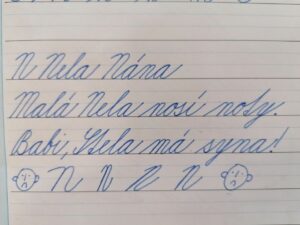 N Nela Nána
Malá Nela nosí noty.
Babi, Hela má syna!
N N N N